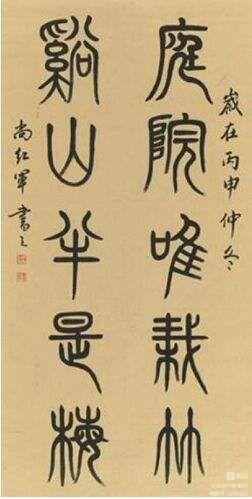 歲在丙申仲冬
庭院唯栽竹
谿山半是梅
尚红軍書之